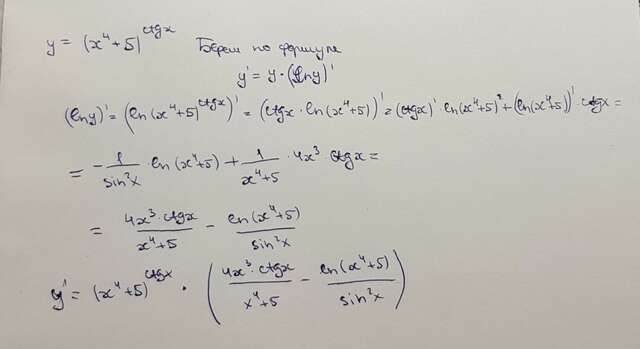 y = (x⁴+5)^ctgx Берем по формуле
y' = y · (ln y)'
(ln y)' = (ln(x⁴+5)^ctgx)' = (ctgx · ln(x⁴+5))' = (ctgx)' · ln(x⁴+5) + (ln(x⁴+5))' · ctgx =
= - 1/sin²x · ln(x⁴+5) + 1/(x⁴+5) · 4x³ · ctgx =
= (4x³ · ctgx)/(x⁴+5) - ln(x⁴+5)/sin²x
y' = (x⁴+5)^ctgx · ((4x³ · ctgx)/(x⁴+5) - ln(x⁴+5)/sin²x)